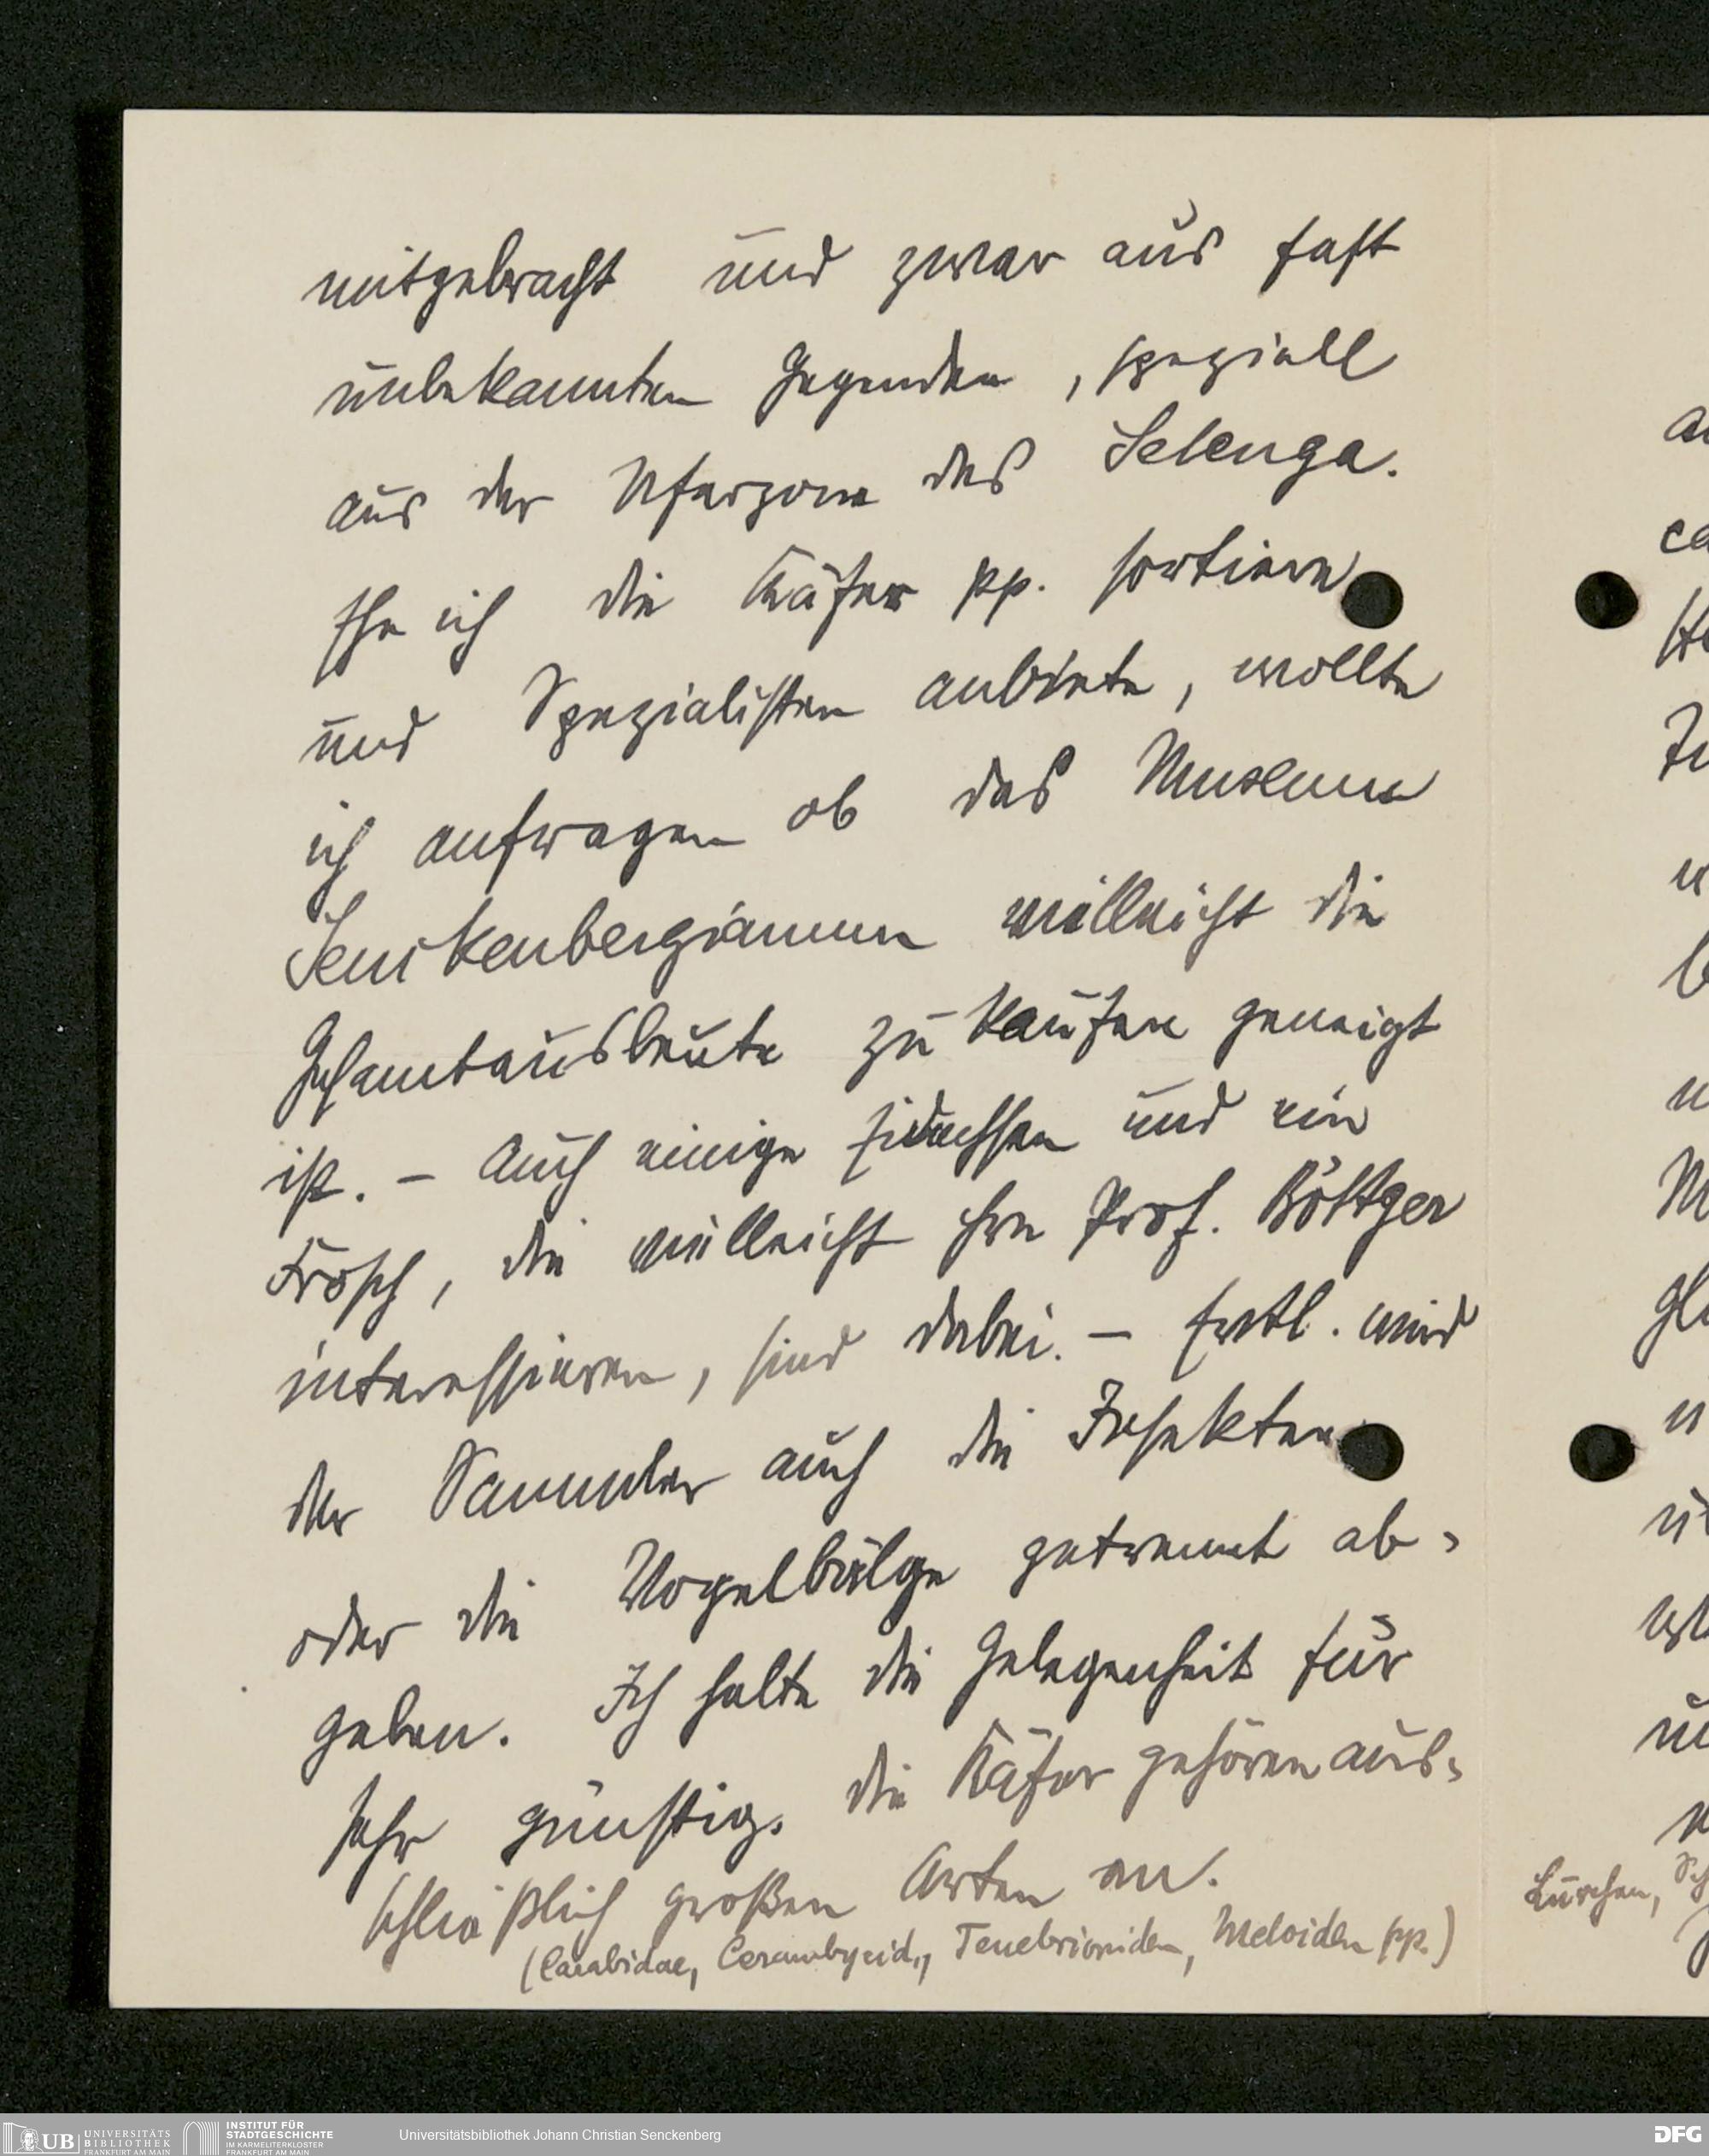 mitgebracht und zwar aus fast
unbekannten Gegenden, speziell
aus der Uferzone des Selenga.
Ehe ich die Käfer pp. sortiere
und Spezialisten anbiete, wollte
ich anfragen ob das Museum
Senckenbergianum vielleicht die
Gesamtausbeute zu kaufen geneigt
ist. – Auch einige Eidechsen und ein
Frosch, die vielleicht Hrn Prof. Böttger
interessieren, sind dabei. – Evtl. wird
der Sammler auch die Insekten
oder die Vogelbälge getrennt ab-
geben. Ich halte die Gelegenheit für
sehr günstig. Die Käfer gehören aus-
schließlich großen Arten an.
(Carabidae, Cerambycid., Tenebrioniden, Meloiden pp.)
Lurchen,
UB UNIVERSITÄTS
BIBLIOTHEK
FRANKFURT AM MAIN
INSTITUT FÜR
STADTGESCHICHTE
IM KARMELITERKLOSTER
FRANKFURT AM MAIN
Universitätsbibliothek Johann Christian Senckenberg
DFG